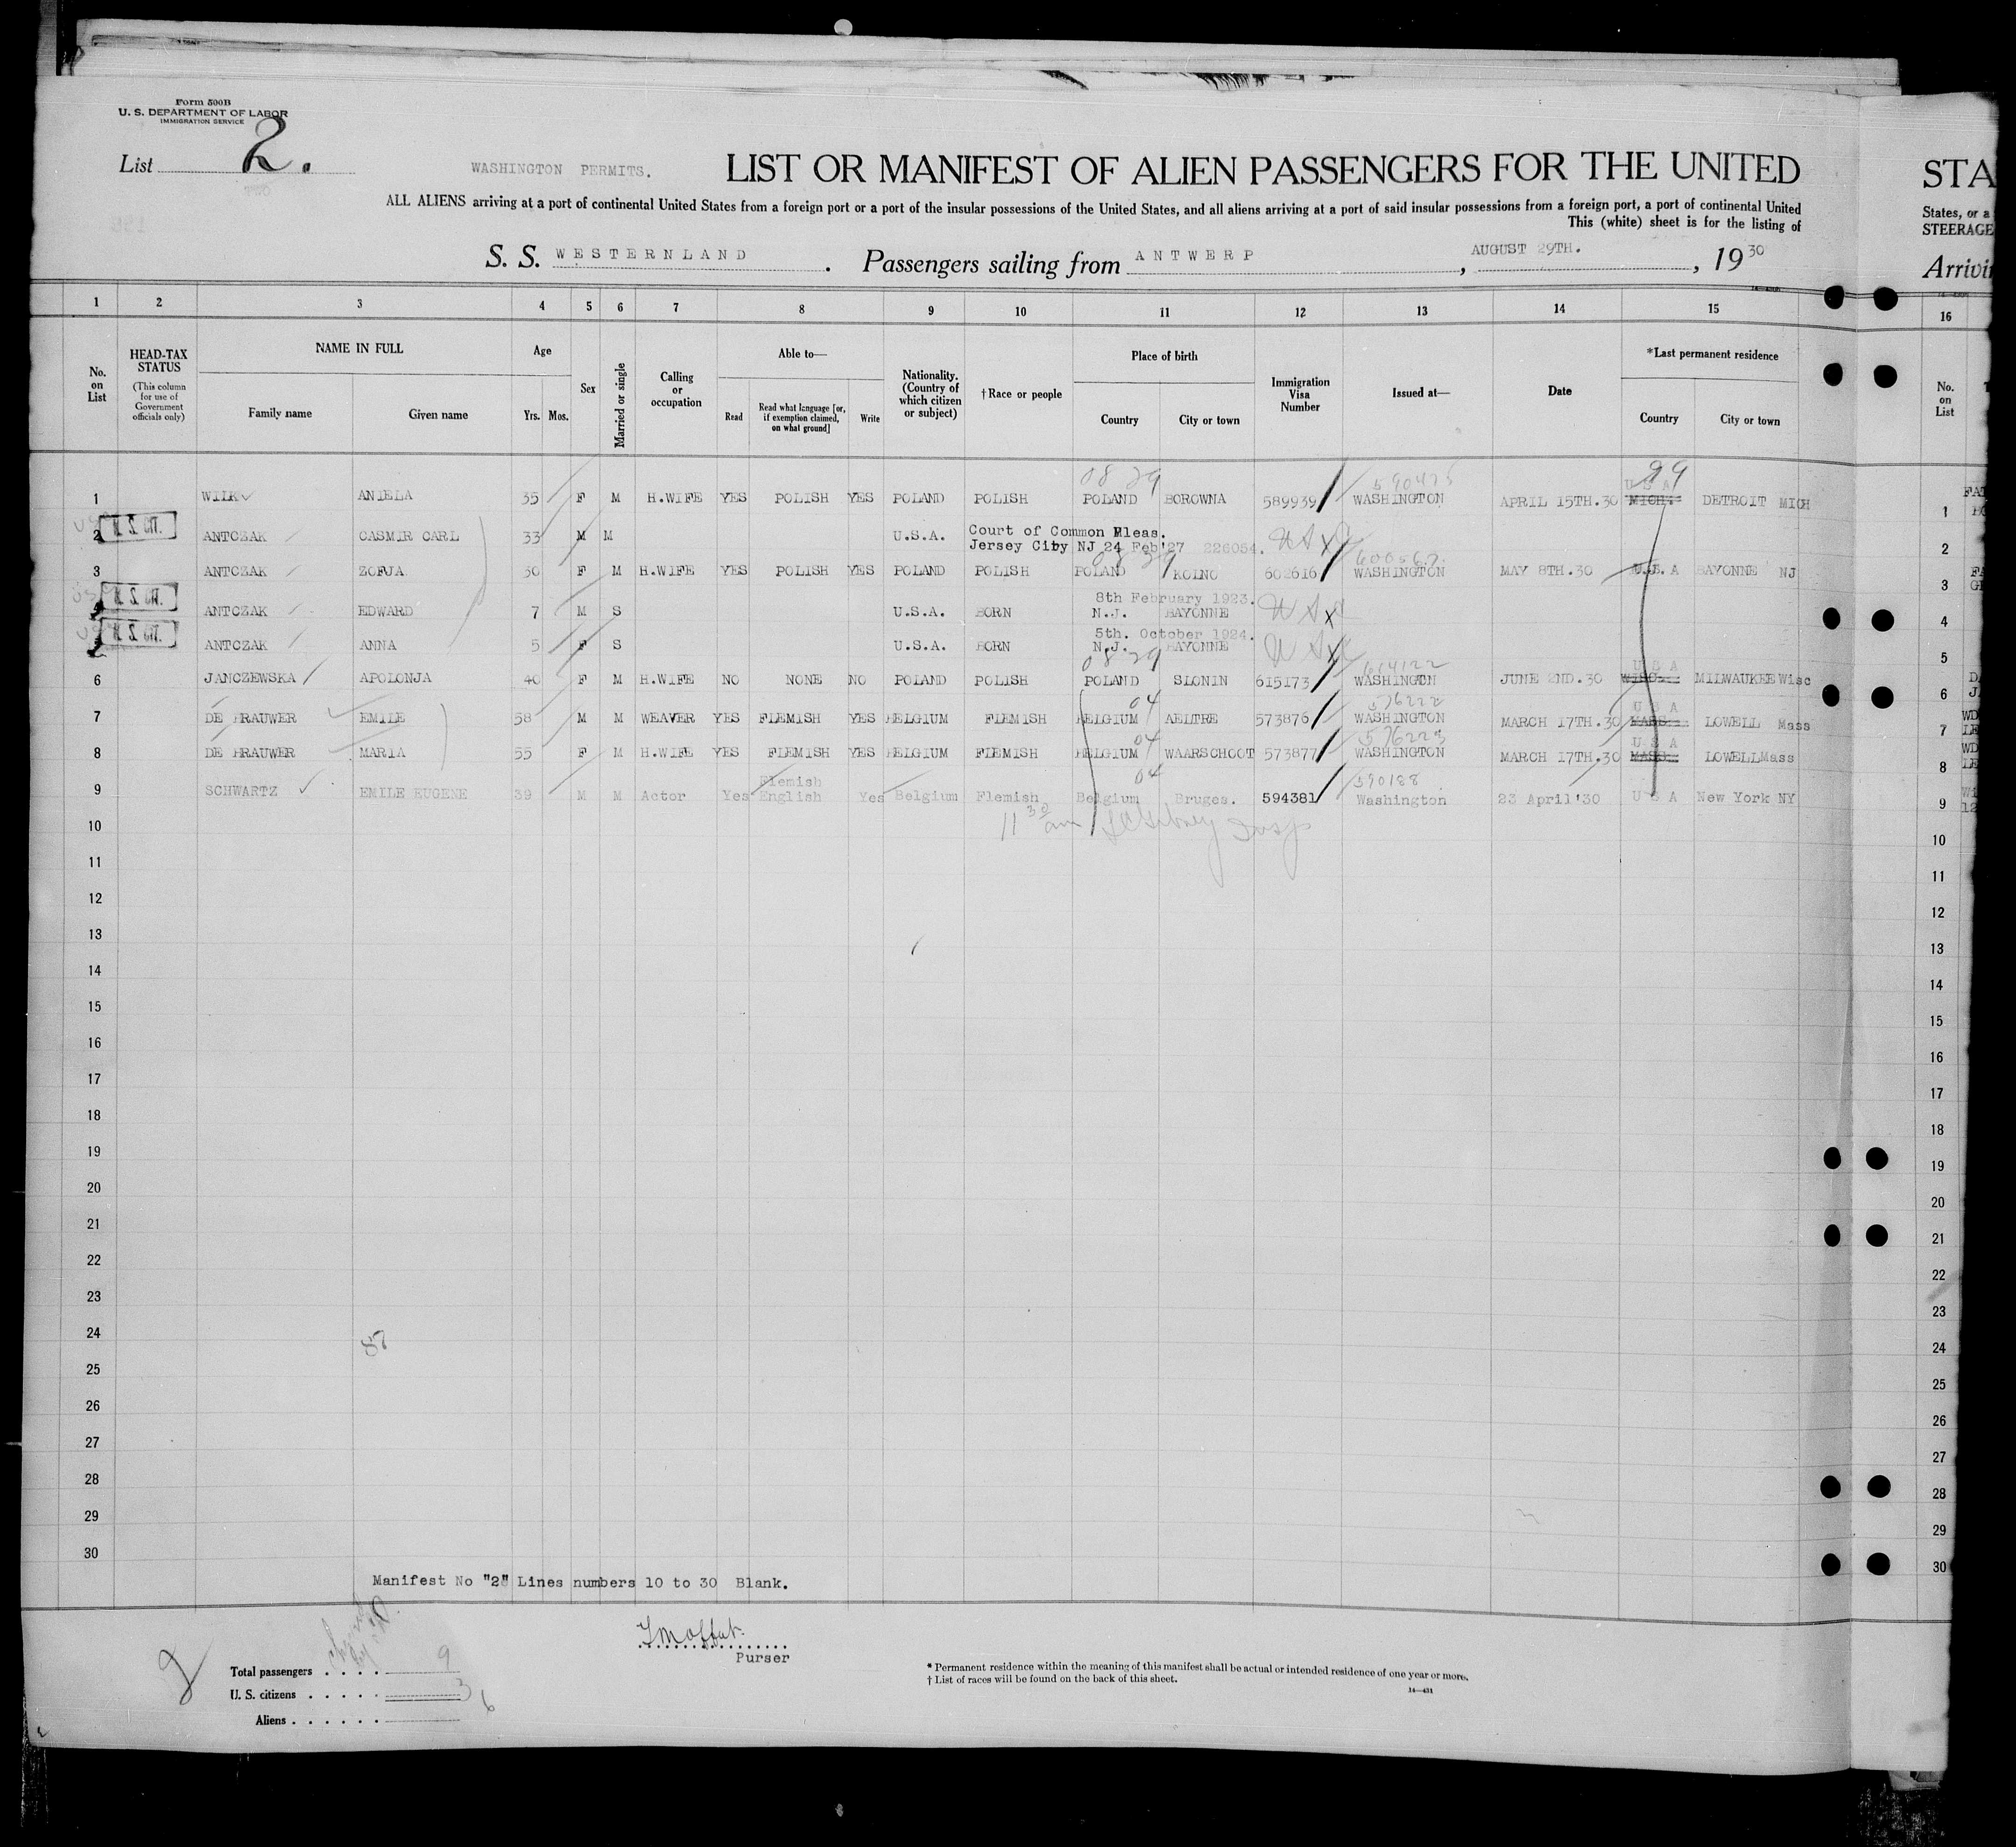 Form 500B
U. S. DEPARTMENT OF LABOR
IMMIGRATION SERVICE
List 2.
WASHINGTON PERMITS.
LIST OR MANIFEST OF ALIEN PASSENGERS FOR THE UNITED
STA
ALL ALIENS arriving at a port of continental United States from a foreign port or a port of the insular possessions of the United States, and all aliens arriving at a port of said insular possessions from a foreign port, a port of continental United
States, or a
This (white) sheet is for the listing of
STEERAGE
S. S. WESTERNLAND. Passengers sailing from ANTWERP, AUGUST 29TH., 1930
1 2 3 4 5 6 7 8 9 10 11 12 13 14 15 16
No. on List
HEAD-TAX STATUS
(This column for use of Government officials only)
NAME IN FULL
Family name Given name
Age
Yrs. Mos.
Sex
Married or single
Calling or occupation
Able to—
Read
Read what language [or, if exemption claimed, on what ground]
Write
Nationality. (Country of which citizen or subject)
†Race or people
Place of birth
Country City or town
Immigration Visa Number
Issued at—
Date
*Last permanent residence
Country City or town
No. on List
08 29 590475 99
U S A
1 WILK ANIELA 35 F M H.WIFE YES POLISH YES POLAND POLISH POLAND BOROWNA 589939 WASHINGTON APRIL 15TH.30 MICH. DETROIT MICH 1
Court of Common Pleas.
2 ANTCZAK CASMIR CARL 33 M M U.S.A. Jersey City NJ 24 Feb'27 226054. 2
08 29 600567
3 ANTCZAK ZOFJA 30 F M H.WIFE YES POLISH YES POLAND POLISH POLAND KOLNO 602616 WASHINGTON MAY 8TH.30 U.S.A BAYONNE NJ 3
8th February 1923.
4 ANTCZAK EDWARD 7 M S U.S.A. BORN N.J. BAYONNE 4
5th. October 1924.
5 ANTCZAK ANNA 5 F S U.S.A. BORN N.J. BAYONNE 5
08 29 614122 U S A
6 JANCZEWSKA APOLONJA 40 F M H.WIFE NO NONE NO POLAND POLISH POLAND SLONIN 615173 WASHINGTON JUNE 2ND.30 WISC. MILWAUKEE Wisc 6
04 576222 U S A
7 DE BRAUWER EMILE 58 M M WEAVER YES FLEMISH YES BELGIUM FLEMISH BELGIUM AELTRE 573876 WASHINGTON MARCH 17TH.30 MASS. LOWELL Mass 7
04 576223 U S A
8 DE BRAUWER MARIA 55 F M H.WIFE YES FLEMISH YES BELGIUM FLEMISH BELGIUM WAARSCHOOT 573877 WASHINGTON MARCH 17TH.30 MASS. LOWELL Mass 8
Flemish 04 590188
9 SCHWARTZ EMILE EUGENE 39 M M Actor Yes English Yes Belgium Flemish Belgium Bruges. 594381 Washington 23 April '30 U S A New York NY 9
11 30 am
10 10
11 11
12 12
13 13
14 14
15 15
16 16
17 17
18 18
19 19
20 20
21 21
22 22
23 23
24 87 24
25 25
26 26
27 27
28 28
29 29
30 30
Manifest No "2" Lines numbers 10 to 30 Blank.
Purser
Total passengers . . . . 9
U. S. citizens . . . . . 3
Aliens . . . . . . 6
* Permanent residence within the meaning of this manifest shall be actual or intended residence of one year or more.
† List of races will be found on the back of this sheet.
14—431